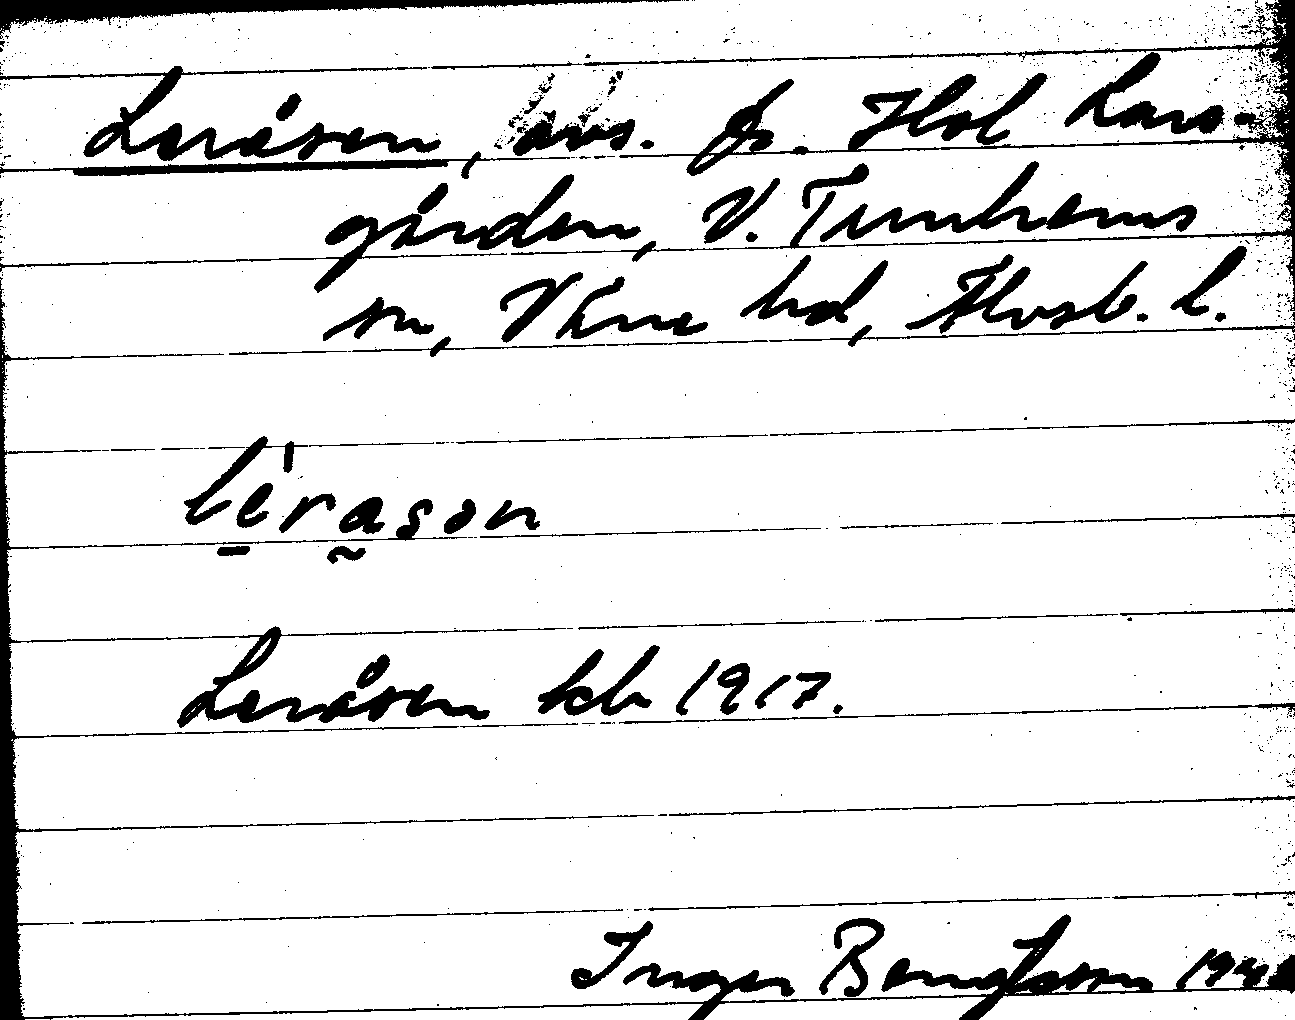 Leråsen, avs. fr. Hol Lars-
gården, V. Tunhems
sn, Väne hd, Älvsb. l.
lérason
Leråsen kb 1917.
Inger Bengtsson